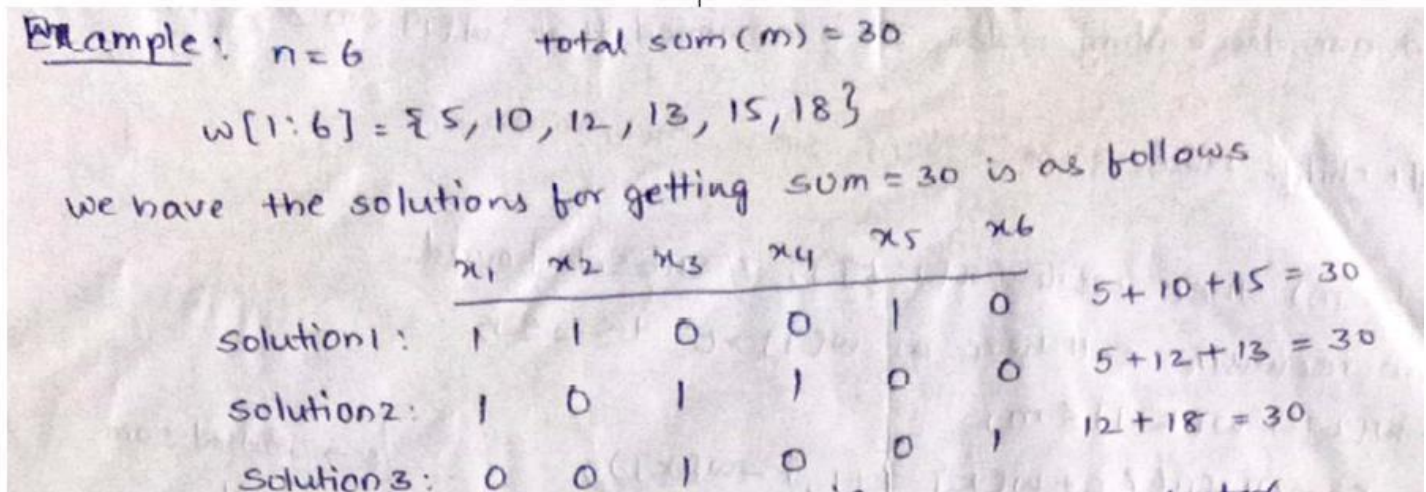 Example: n=6 total sum(m) = 30
w[1:6] = {5, 10, 12, 13, 15, 18}
we have the solutions for getting sum = 30 is as follows
x1 x2 x3 x4 x5 x6
solution1: 1 1 0 0 1 0 5+10+15 = 30
solution2: 1 0 1 1 0 0 5+12+13 = 30
Solution3: 0 0 1 0 0 1 12+18 = 30